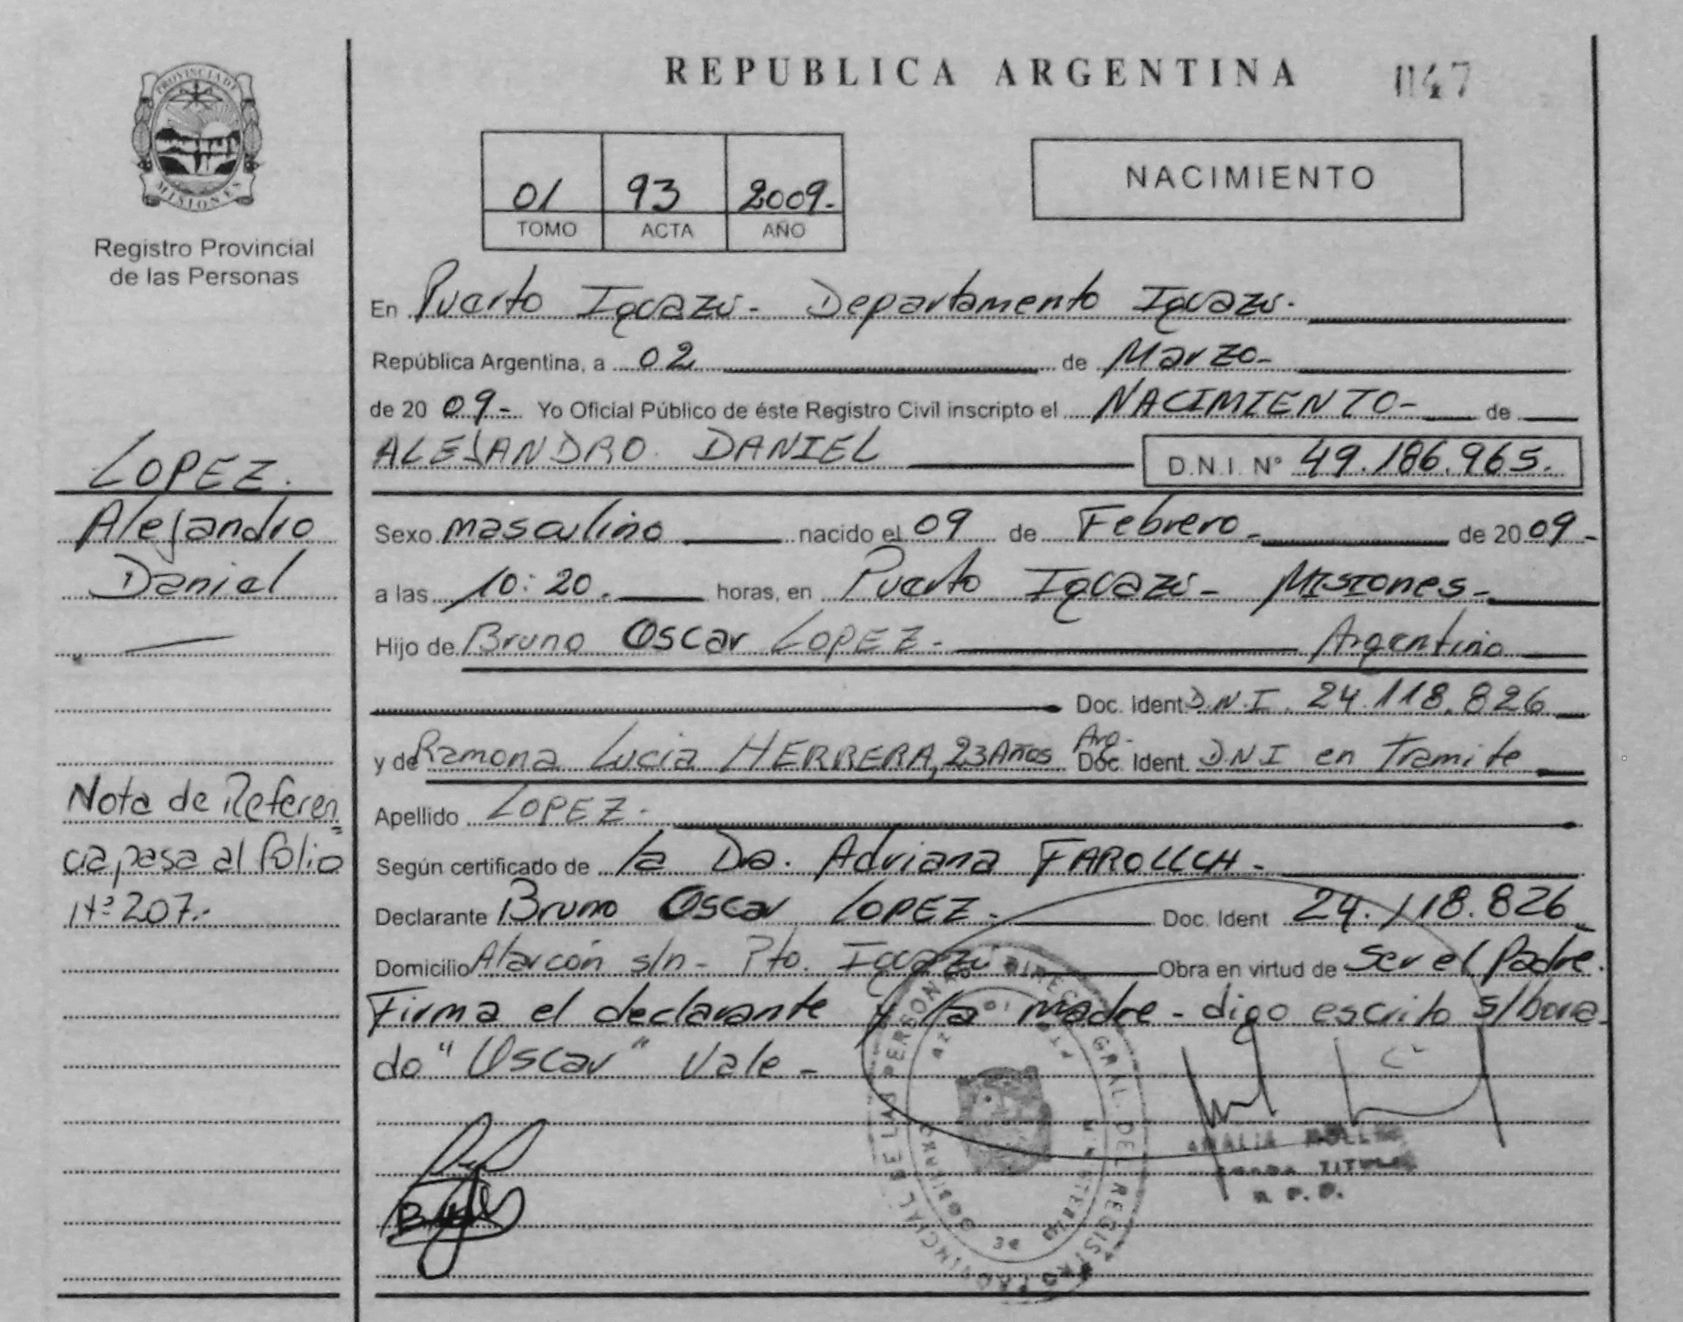 REPUBLICA ARGENTINA
1147
PROVINCIA DE
MISIONES
Registro Provincial
de las Personas
01 93 2009.-
TOMO ACTA AÑO
NACIMIENTO
En Puerto Iguazú - Departamento Iguazú.-
República Argentina, a 02 de Marzo-
de 20 09.- Yo Oficial Público de éste Registro Civil inscripto el NACIMIENTO- de
ALEJANDRO DANIEL D.N.I. Nº 49.186.965.
Sexo masculino nacido el 09 de Febrero - de 20 09-
a las 10:20. horas, en Puerto Iguazú - Misiones -
Hijo de Bruno Oscar LOPEZ - Argentino
Doc. Ident D.N.I. 24.118.826
y de Ramona Lucia HERRERA, 23 Años Arg- Doc. Ident. DNI en Tramite
Apellido LOPEZ -
Según certificado de la Dra. Adriana
Declarante Bruno Oscar LOPEZ - Doc. Ident 24.118.826
Domicilio Alarcón s/n - Pto. Iguazú Obra en virtud de ser el Padre.
Firma el declarante y la madre - digo escrito s/borra
do "Oscar" Vale -
LOPEZ.
Alejandro
Daniel
Nota de Referen
cia pasa al folio
Nº 207.-
DIREC. GRAL. DEL REGISTRO PROVINCIAL DE LAS PERSONAS
MINISTERIO DE GOBIERNO
R. P. P.